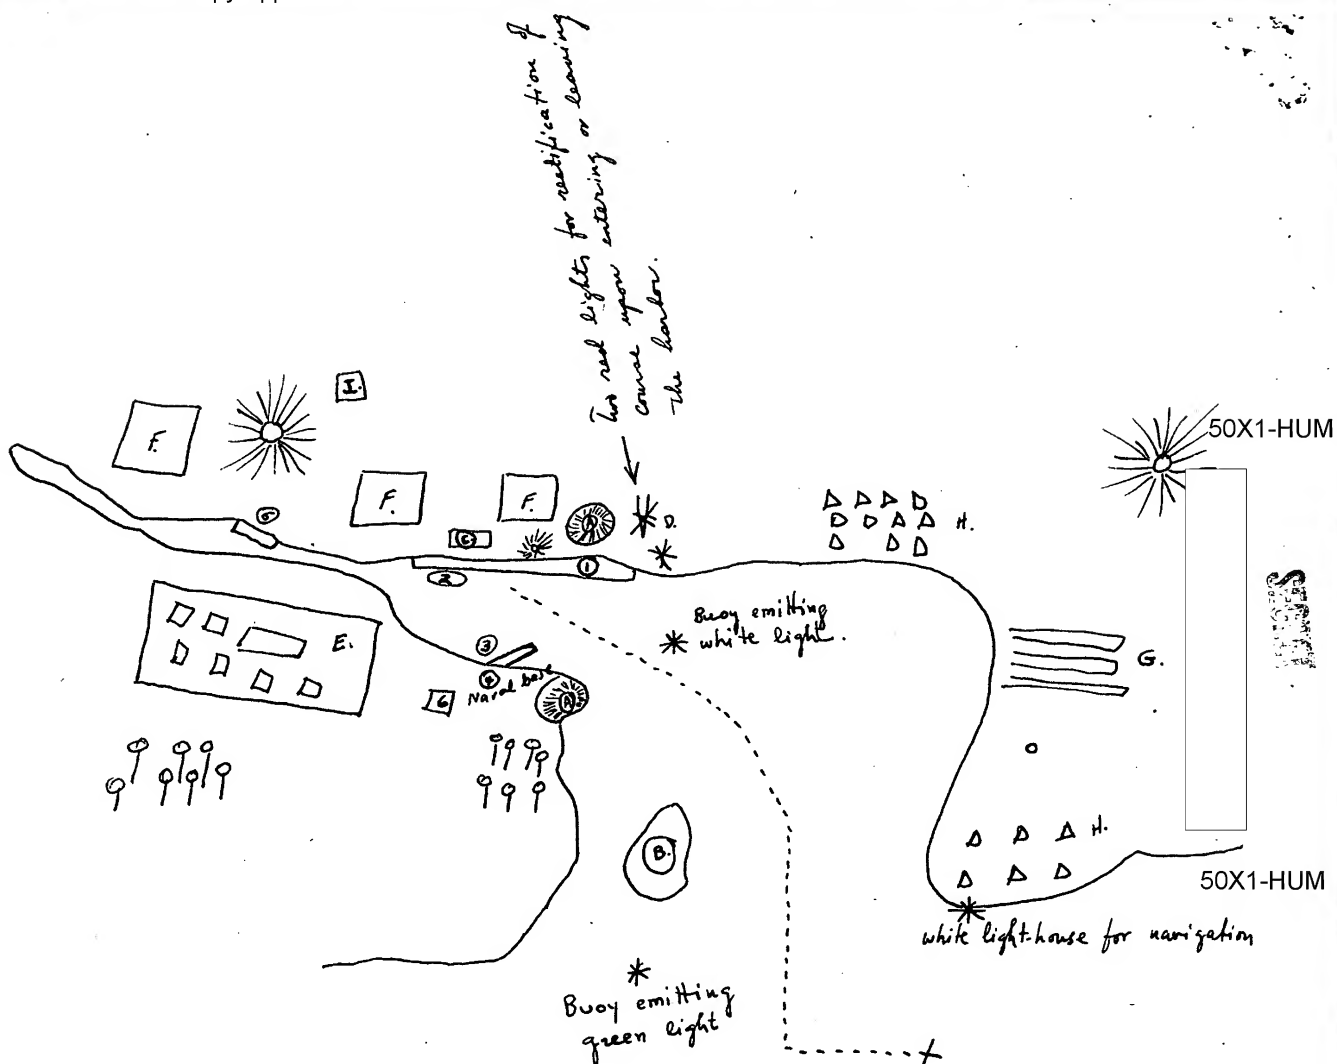 Two red lights for rectification of
course upon entering or leaving
the harbor.
I.
F.
50X1-HUM
F.
F.
A
D.
H.
5
C
1
2
Buoy emitting
white light.
E.
3
4
Naval base
6
A
G.
B.
H.
50X1-HUM
white light-house for navigation
Buoy emitting
green light